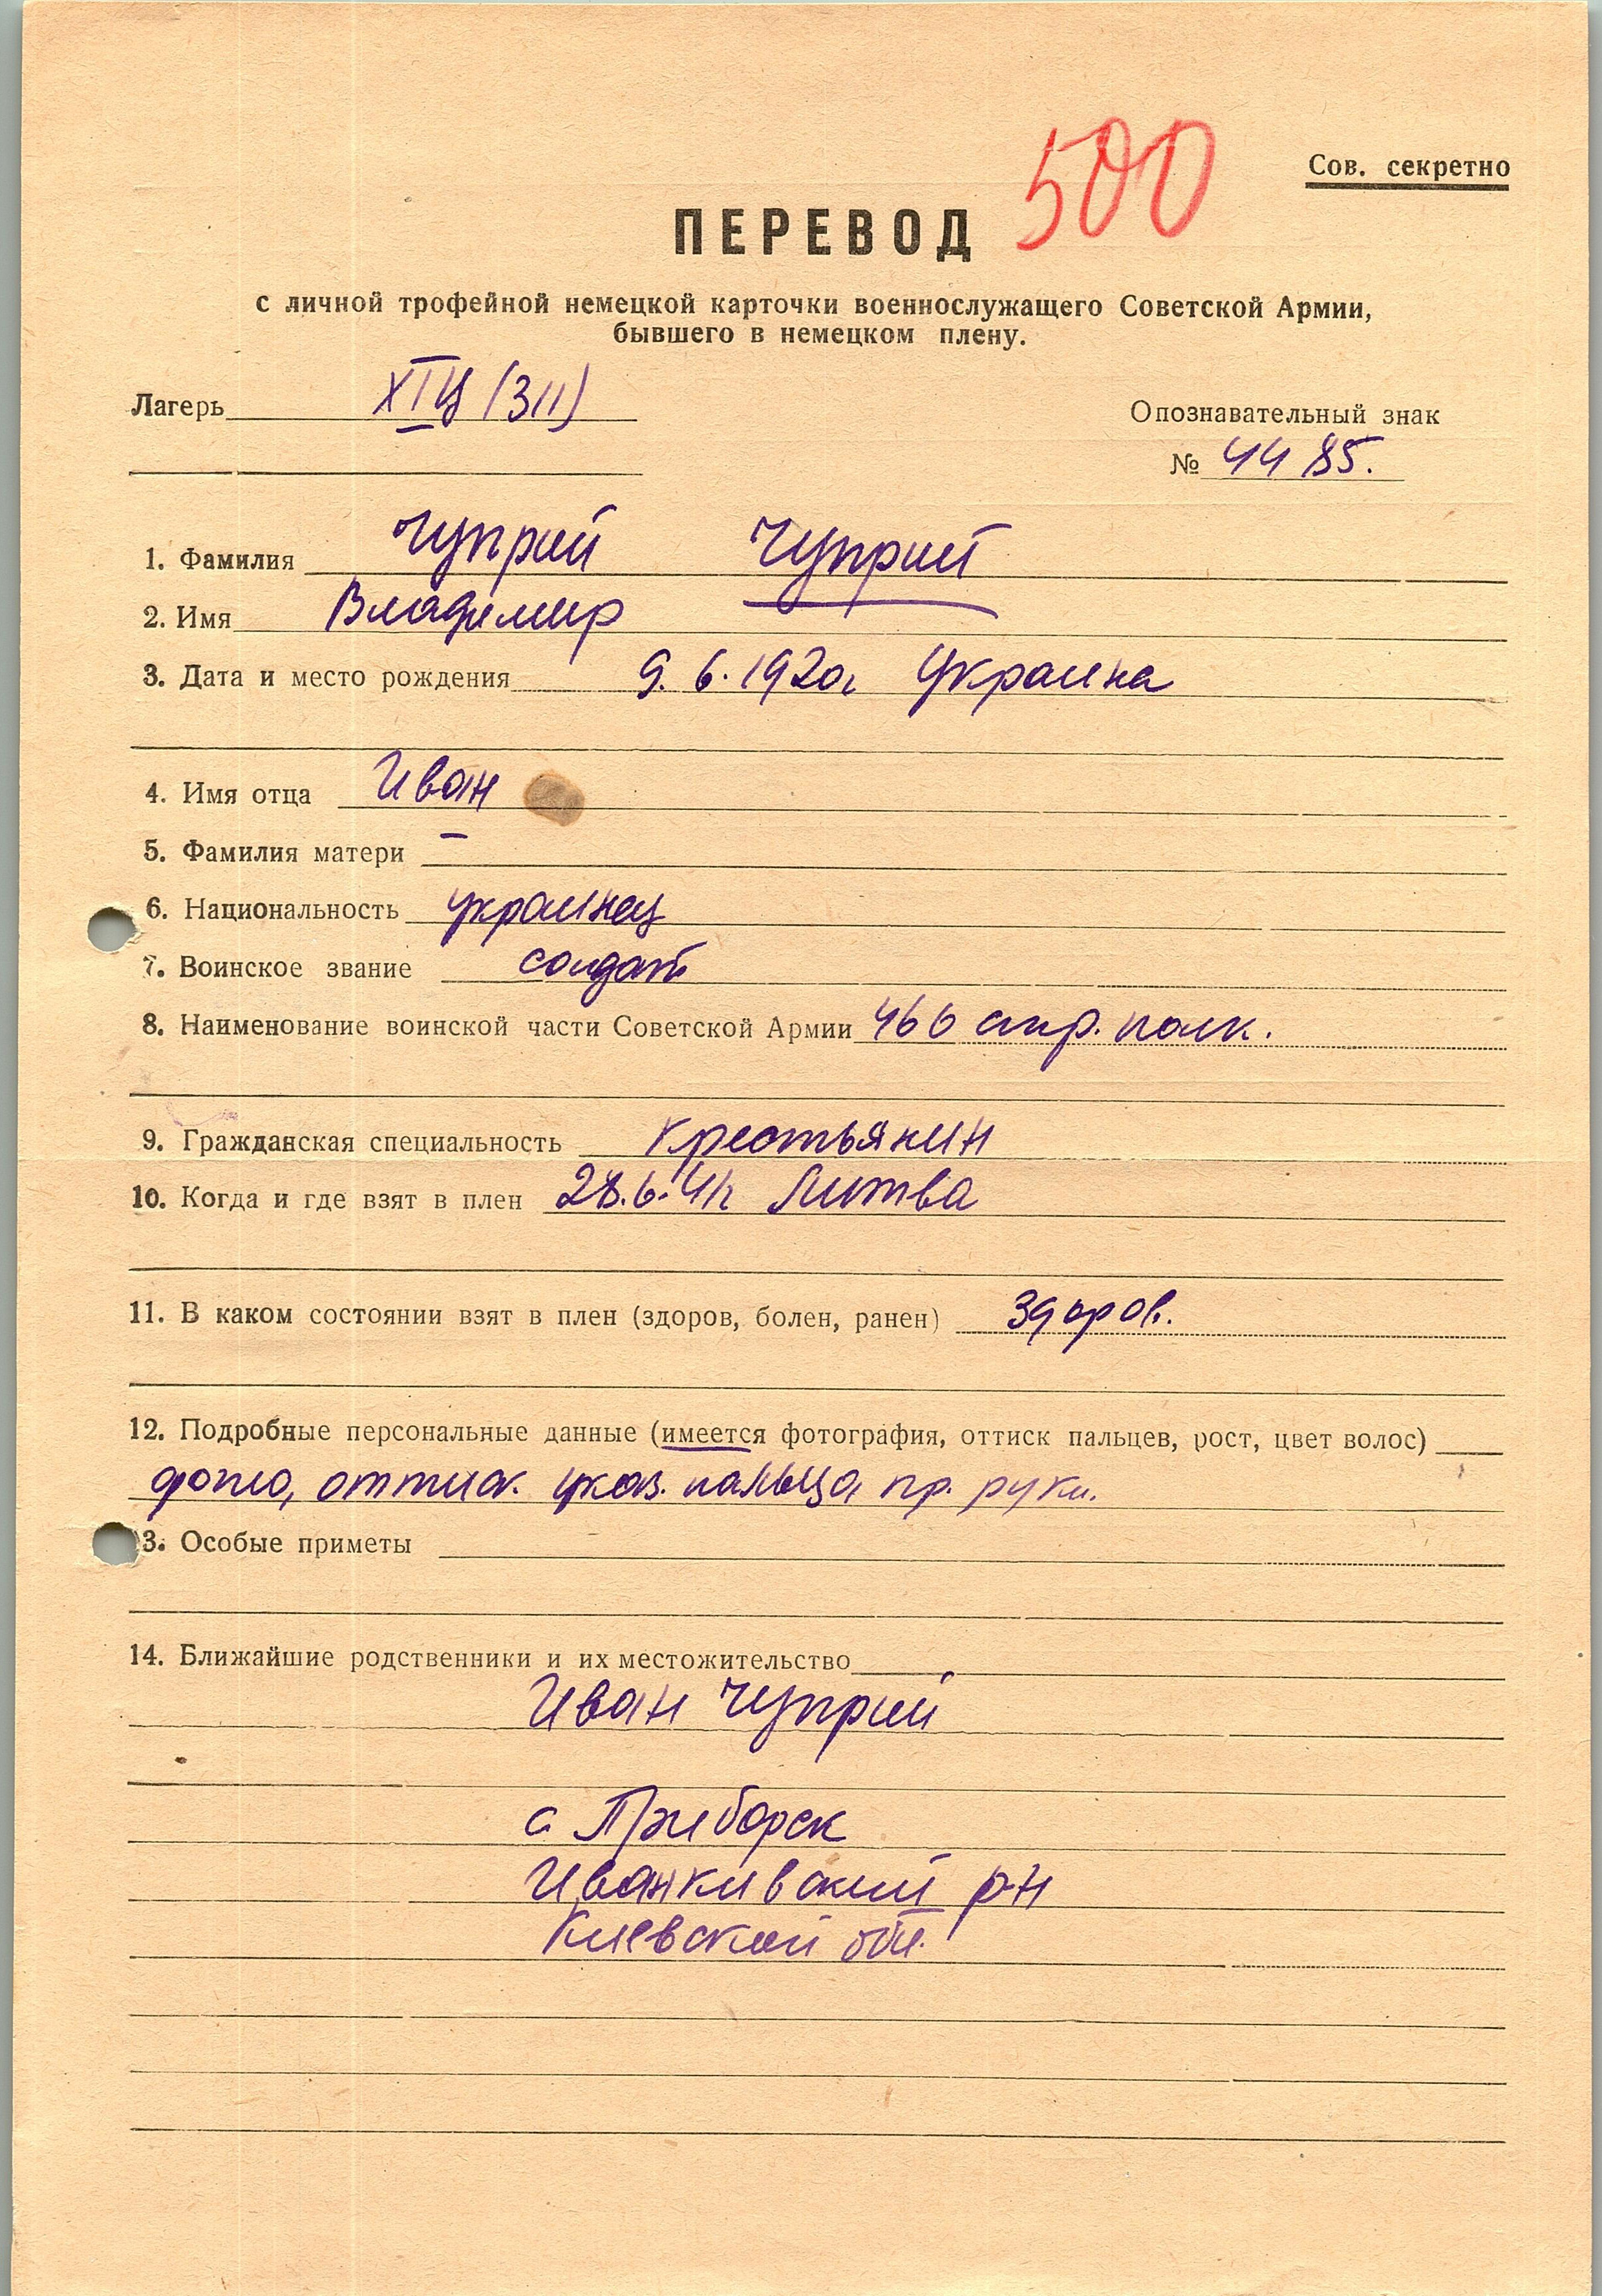 500
Сов. секретно
ПЕРЕВОД
с личной трофейной немецкой карточки военнослужащего Советской Армии,
бывшего в немецком плену.
Лагерь XIЦ (311)
Опознавательный знак
№ 4485.
1. Фамилия Чуприй Чуприй
2. Имя Владимир
3. Дата и место рождения 9.6.1920г Украина
4. Имя отца Иван
5. Фамилия матери –
6. Национальность украинец
7. Воинское звание солдат
8. Наименование воинской части Советской Армии 466 стр. полк.
9. Гражданская специальность крестьянин
10. Когда и где взят в плен 28.6.41г Литва
11. В каком состоянии взят в плен (здоров, болен, ранен) здоров.
12. Подробные персональные данные (имеется фотография, оттиск пальцев, рост, цвет волос)
фото, оттиск. указ. пальца пр. руки.
3. Особые приметы
14. Ближайшие родственники и их местожительство
Иван Чуприй
с Приборск
Иванкивский р-н
Киевской обл.